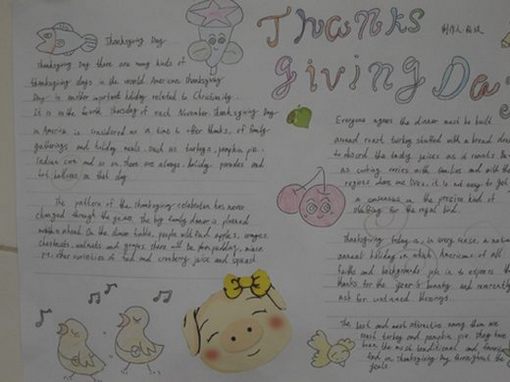 Thanks
giving Da
Thanksgiving Day
Thanksgiving Day there are many kinds of
thanksgiving days in the world. American thanksgiving
Day is another important holiday related to Christianity.
It is on the fourth Thursday of each November. thanksgiving Day
in America is considered as a time to offer thanks, of family
gatherings and holiday meals. Such as turkeys, pumpkin pie,
Indian corn and so on. there are always holiday parades and
hot balloons on that day.
The pattern of the thanksgiving celebration has never
changed through the years. The big family dinner is planned
months ahead. On the dinner table, people will find apples, oranges,
chestnuts, walnuts and grapes. there will be plum pudding, mince
pie, other varieties of food and cranberry juice and squash.
Everyone agrees the dinner must be built
around roast turkey stuffed with a bread dress
to absorb the tasty juices as it roasts. But
as cooking varies with families and with the
regions where one lives, it is not easy to get
a consensus on the precise kind of
stuffing for the royal bird.
Thanksgiving today is, in every sense, a national
annual holiday on which Americans of all
faiths and backgrounds join in to express their
thanks for the year's bounty and reverently
ask for continued blessings.
The best and most attractive among them are
roast turkey and pumpkin pie. they have
been the most traditional and favourite
food on Thanksgiving Day throughout the
years.